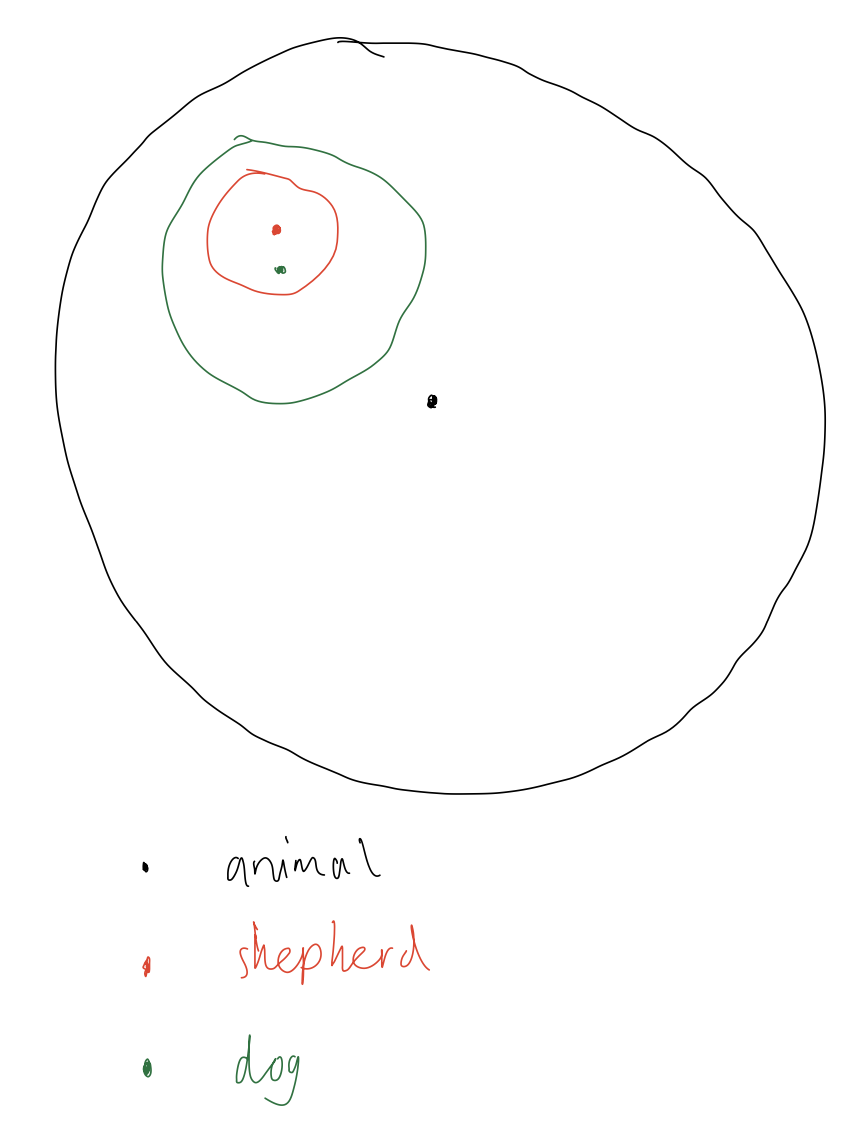 animal
shepherd
dog